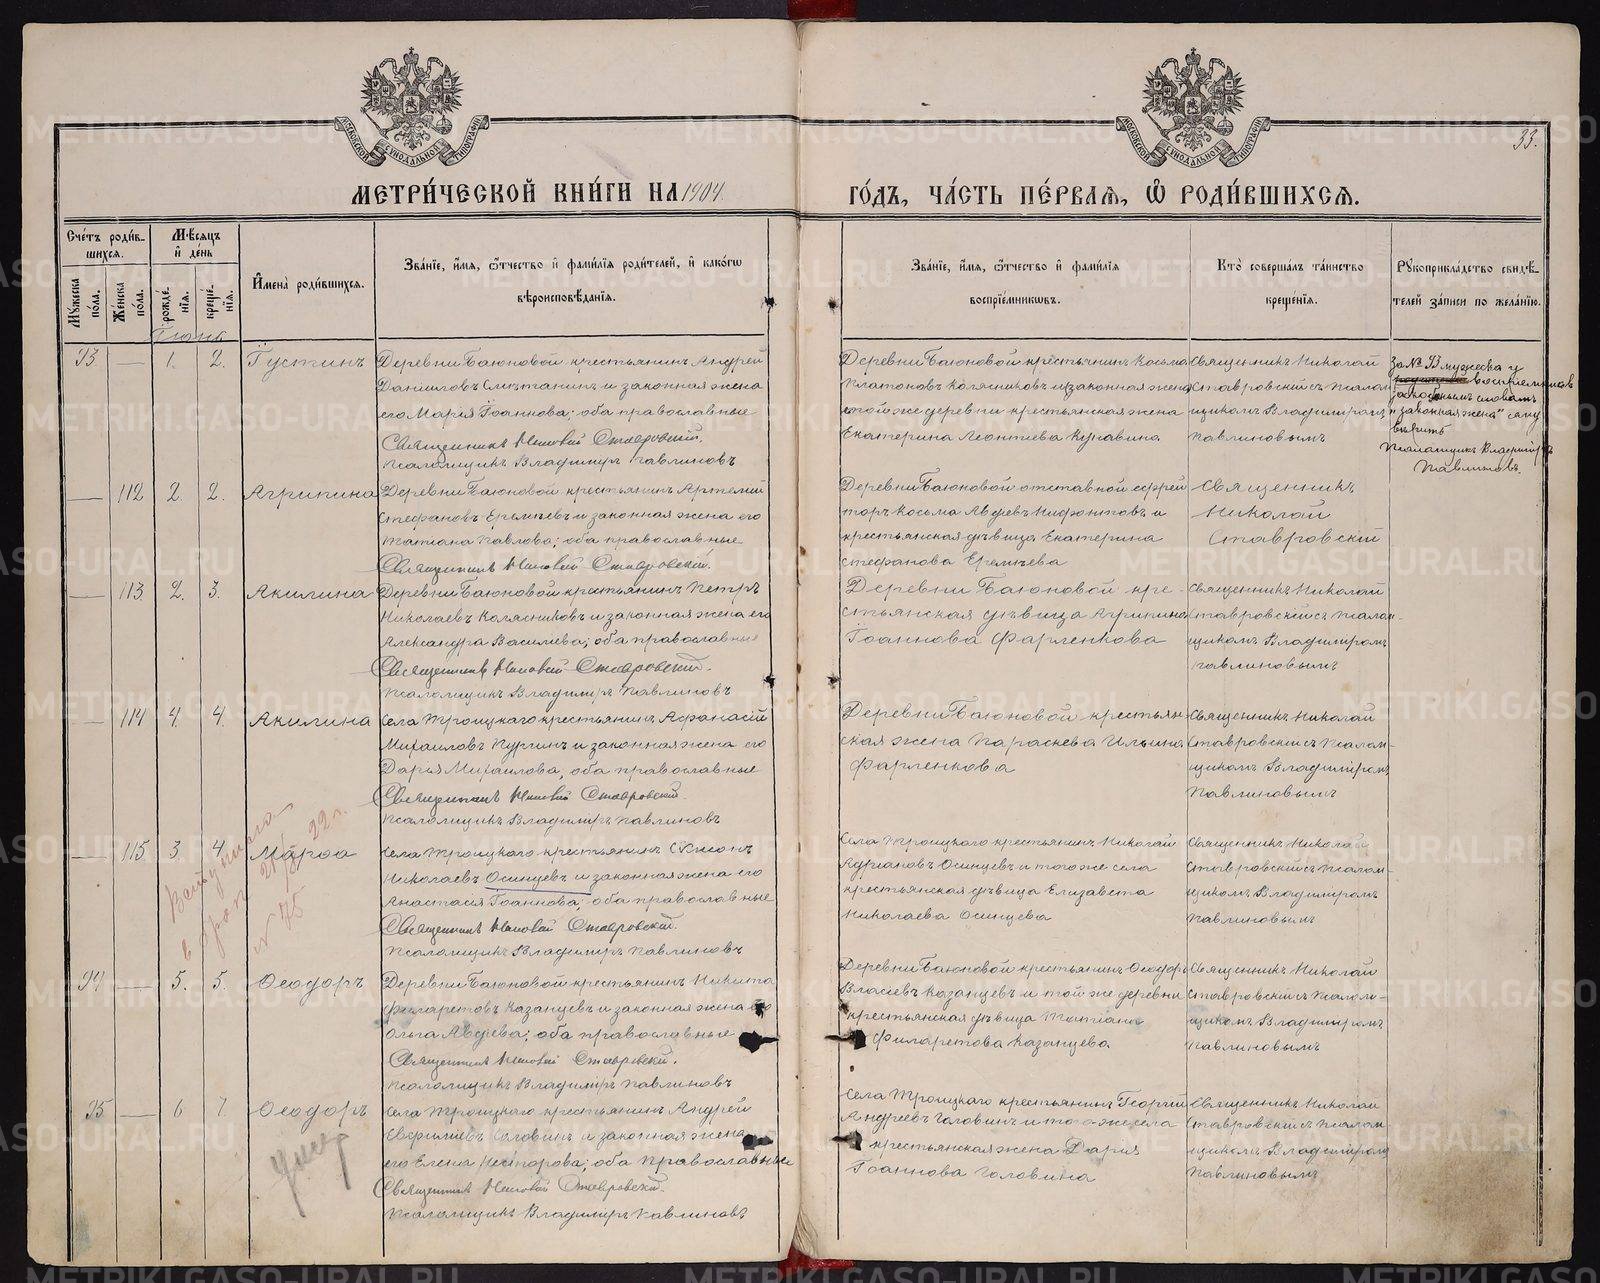 МЕТРИ́ЧЕСКОЙ КНИ́ГИ НА 1904.
ГО́ДЪ, ЧА́СТЬ ПЕ́РВАѦ, Ѡ҆ РОДИ́ВШИХСѦ.
33.
Сче́тъ роди́в-
шихсѧ.
Мꙋ́жеска
по́ла.
Же́нска
по́ла.
Мѣ́сѧцъ
и҆ де́нь
рожде́-
нїѧ.
креще́-
нїѧ.
И҆мена̀ роди́вшихсѧ.
Зва́нїе, и҆́мѧ, ѻ҆́тчество и҆ фами́лїѧ роди́телей, и҆ како́гѡ
вѣроисповѣ́данїѧ.
Зва́нїе, и҆́мѧ, ѻ҆́тчество и҆ фами́лїѧ
воспрїе́мникѡвъ.
Кто̀ соверша́лъ та́инство
креще́нїѧ.
Рꙋкоприкла́дство свидѣ́-
телей за́писи по жела́нїю.
Іюнь
93 — 1. 2. Іустинъ
Деревни Баюновой крестьянинъ Андрей
Данииловъ Сметанинъ и законная жена
его Марія Іоаннова; оба православные
Священникъ Николай Ставровскій.
Псаломщикъ Владиміръ Павлиновъ
Деревни Баюновой крестьянинъ Косьма
Платоновъ Колясниковъ и законная жена
той же деревни крестьянская жена
Екатерина Леонтіева Купавина
Священникъ Николай
Ставровскій съ псалом
щикомъ Владиміромъ
Павлиновымъ
За № 93 мужеска у
воспріемниковъ
словамъ
"законная жена"
вѣрить
Псаломщикъ Владиміръ
Павлиновъ.
— 112 2. 2. Агрипина
Деревни Баюновой крестьянинъ Артемій
Стефановъ Еремѣевъ и законная жена его
Татіана Павлова; оба православные
Священникъ Николай Ставровскій.
Деревни Баюновой отставной ефрей
торъ Косьма Авдіевъ Нифонтовъ и
крестьянская дѣвица Екатерина
Стефанова Еремѣева
Священникъ
Николай
Ставровскій
— 113 2. 3. Акилина
Деревни Баюновой крестьянинъ Петръ
Николаевъ Колясниковъ и законная жена его
Александра Василіева; оба православные
Священникъ Николай Ставровскій.
Псаломщикъ Владиміръ Павлиновъ
Деревни Баюновой кре-
стьянская дѣвица Агрипина
Іоаннова Фарленкова
Священникъ Николай
Ставровскій съ псалом-
щикомъ Владиміромъ
Павлиновымъ
— 114 4. 4. Акилина
Села Троицкаго крестьянинъ Аѳанасій
Михаиловъ Пургинъ и законная жена его
Дарья Михаилова, оба православные
Священникъ Николай Ставровскій.
Псаломщикъ Владиміръ Павлиновъ
Деревни Баюновой крестьян-
ская жена Параскева Ильина
Фарленкова
Священникъ Николай
Ставровскій съ псалом-
щикомъ Владиміромъ
Павлиновымъ
— 115 3. 4. Марѳа
Села Троицкаго крестьянинъ Сѵмеонъ
Николаевъ Осинцевъ и законная жена его
Анастасія Іоаннова; оба православные
Священникъ Николай Ставровскій.
Псаломщикъ Владиміръ Павлиновъ
Села Троицкаго крестьянинъ Николай
Адріановъ Осинцевъ и того же села
крестьянская дѣвица Елизавета
Николаева Осинцева
Священникъ Николай
Ставровскій съ псалом-
щикомъ Владиміромъ
Павлиновымъ
в брак 22 г.
№ 75
94 — 5. 5. Ѳеодоръ
Деревни Баюновой крестьянинъ Никита
Филаретовъ Казанцевъ и законная жена его
Ольга Авдіева; оба православные
Священникъ Николай Ставровскій.
Псаломщикъ Владиміръ Павлиновъ
Деревни Баюновой крестьянинъ Ѳеодоръ
Власіевъ Казанцевъ и той же деревни
крестьянская дѣвица Татіана
Филаретова Казанцева
Священникъ Николай
Ставровскій съ псалом-
щикомъ Владиміромъ
Павлиновымъ
95 — 6 7. Ѳеодоръ
умер
Села Троицкаго крестьянинъ Андрей
Евфиміевъ Головинъ и законная жена
его Елена Несторова; оба православные
Священникъ Николай Ставровскій.
Псаломщикъ Владиміръ Павлиновъ
Села Троицкаго крестьянинъ Георгій
Андреевъ Головинъ и того же села
крестьянская жена Дарія
Іоаннова Головина
Священникъ Николай
Ставровскій съ псалом
щикомъ Владиміромъ
Павлиновымъ
METRIKI.GASO-URAL.RU